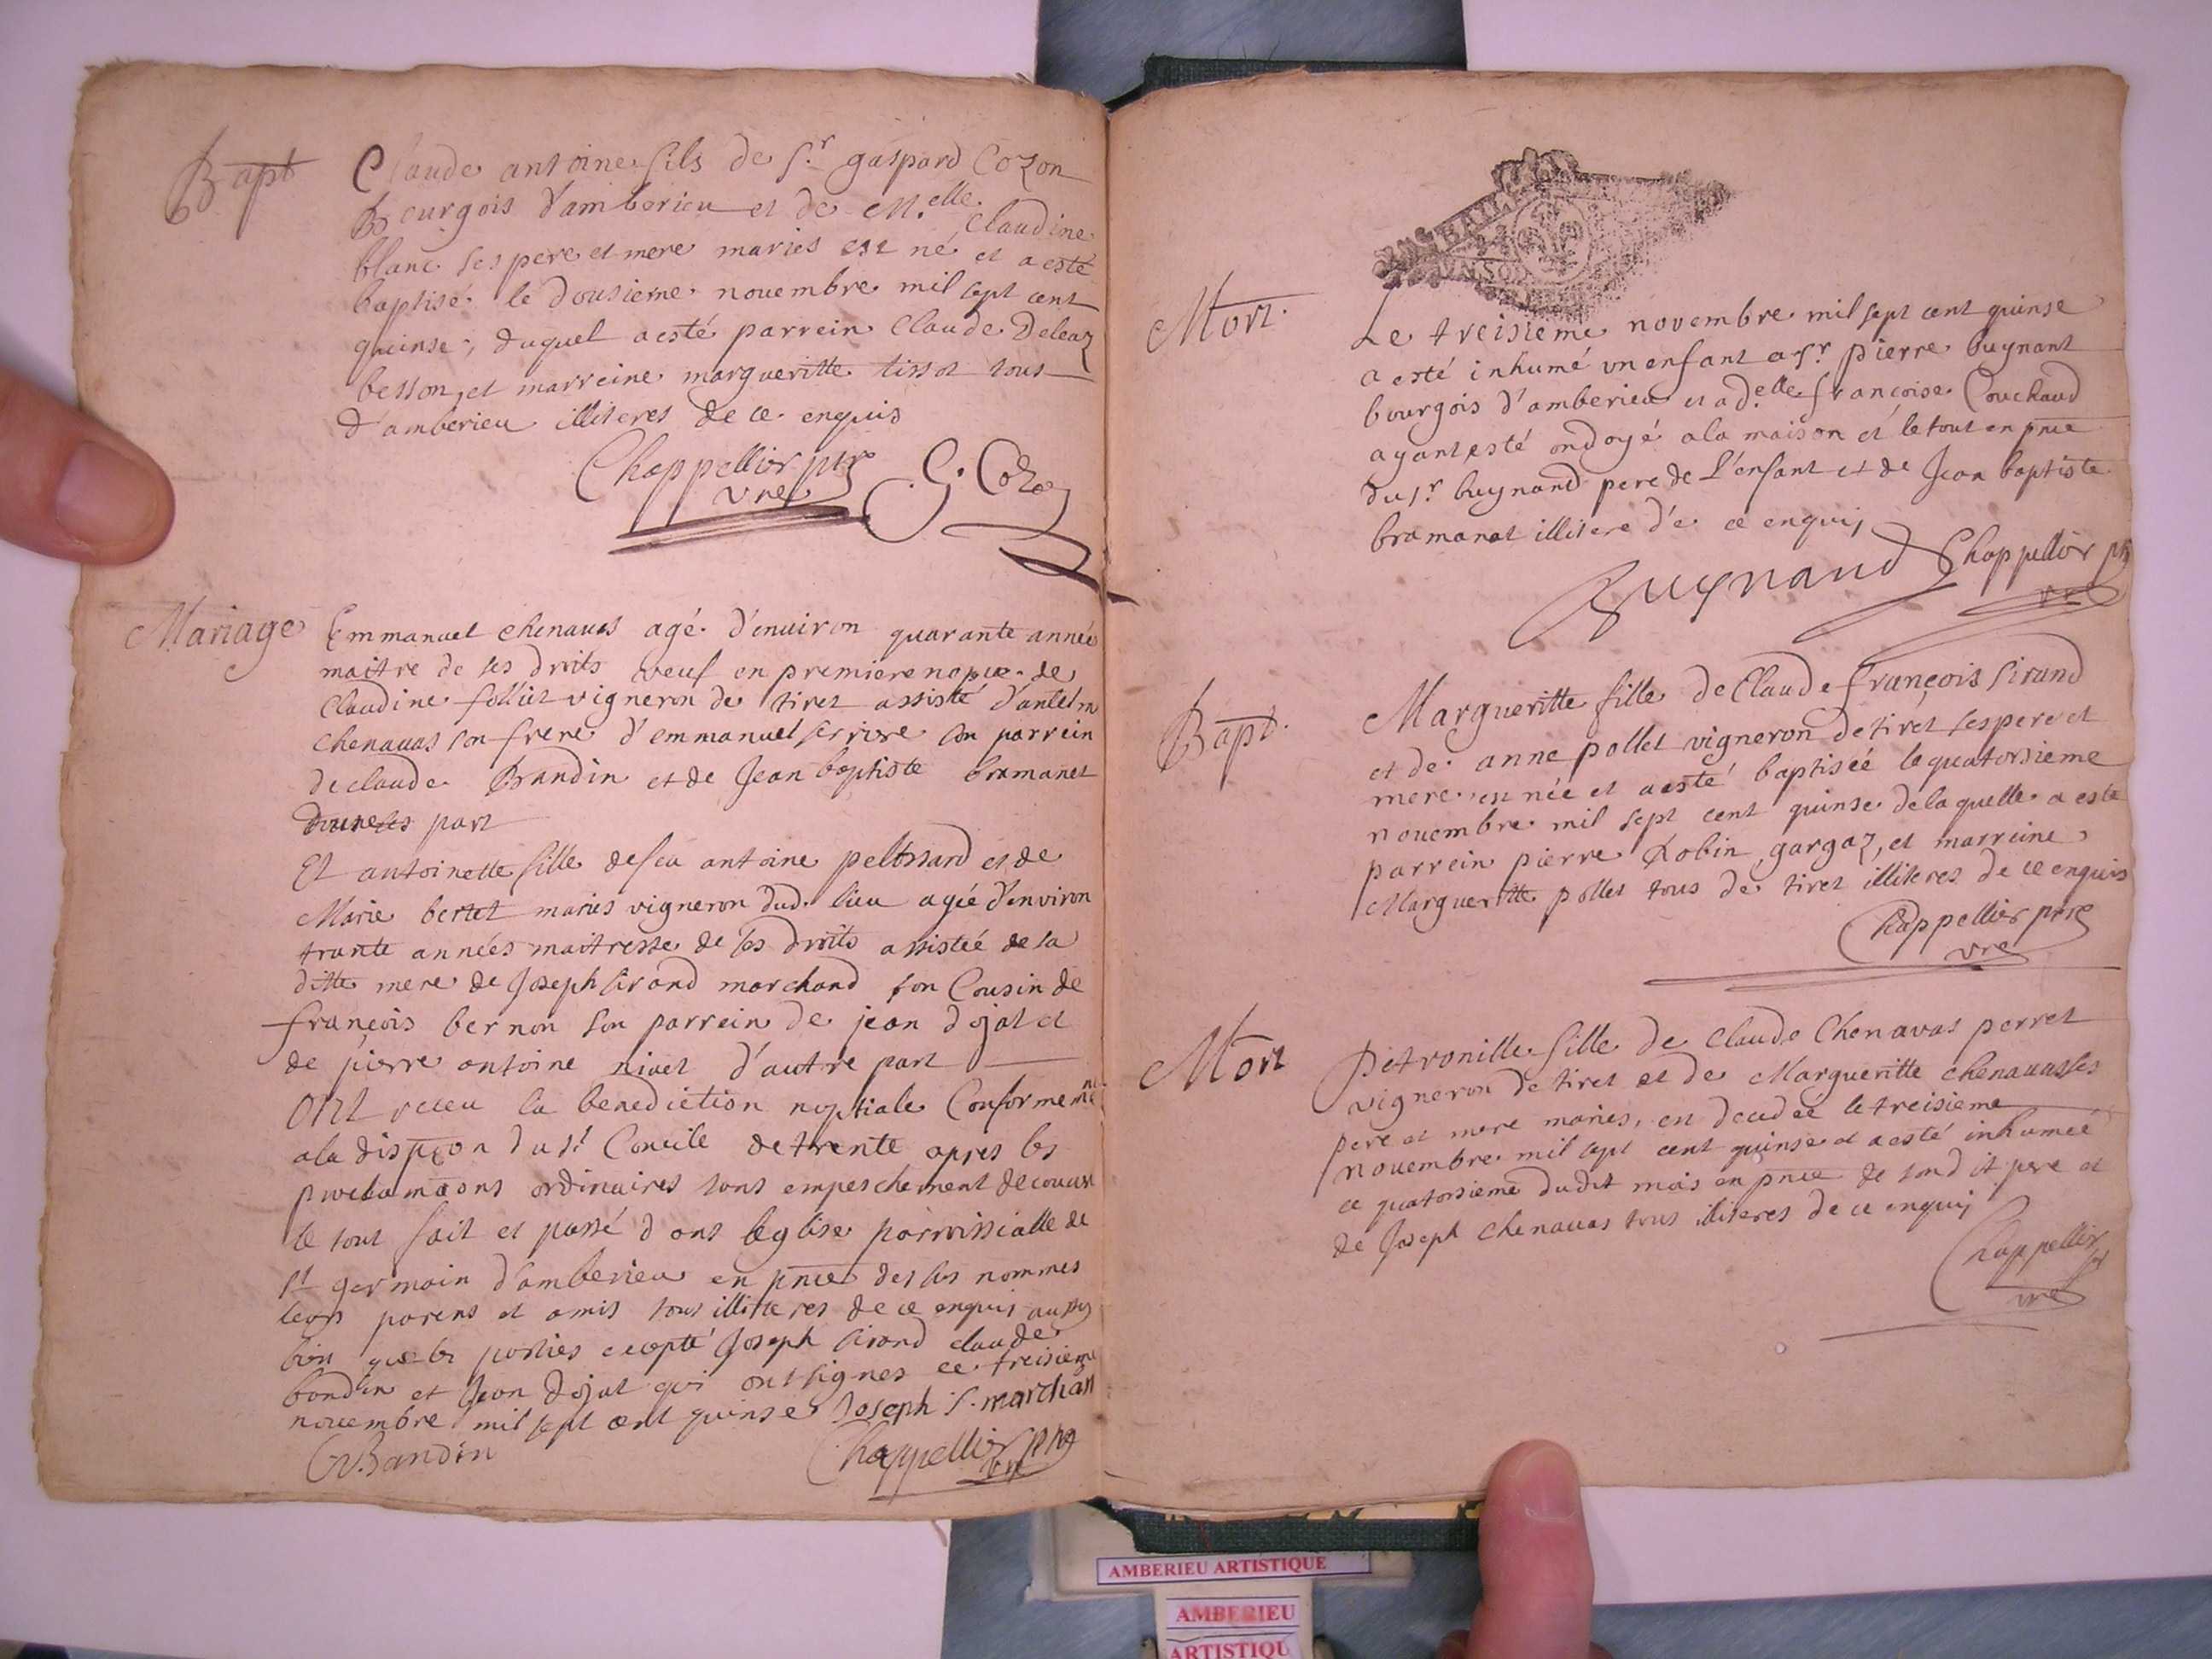 Bapt
Claude antoine fils de Sr gaspard Cozon
Bourgois d'amberieu et de M.elle Claudine
blanc ses pere et mere mariés est né et a esté
baptisé le dousieme novembre mil sept cent
quinse, duquel a esté parrein Claude Deleaz
besson, et marreine margueritte tissot tous
d'amberieu illiteres de ce enquis
Chappellier ptr
vre
G. Cozon
Mariage
Emmanuel chenavas agé d'enuiron quarante années
maitre de ses droits veuf en premiere nopce de
Claudine folliet vigneron de tiret assisté d'antelm
chenauas son frere d'emmanuel serriere son parrein
de claude Brandin et de Jean baptiste bramanet
d'une part
Et antoinette fille de feu antoine pelossard et de
Marie bertet mariés vigneron dud. lieu agée d'environ
trante années maitresse de ses droits assistée de sa
ditte mere de Joseph sirand marchand son Cousin de
françois bernon son parrein de jean dojat et
de pierre antoine nivet d'autre part
Ont receu la benediction nuptiale Conformemnt
a la dispoon du st Concile de trente apres les
proclamaons ordinaires sans empeschement decouvert
le tout fait et passé dans leglise parroissialle de
st germain d'amberieu en pnce des sus nommes
leurs parens et amis tous illiteres de ce enquis aussy
bien que les parties excepté Joseph sirand claude
bandin et Jean dojat qui ont signes ce treisieme
novembre mil sept cent quinse Joseph S. marchan
C Bandin
Chappellier ptr
vre
Mort
Le treisieme novembre mil sept cent quinse
a esté inhumé un enfant a sr pierre buynant
bourgois d'amberieu et a d.elle françoise Couchaud
ayant esté ondoyé a la maison et le tout en pnce
du sr buynand pere de l'enfant et de Jean baptiste
bramanet illitere de ce enquis
Buynand
Chappellier ptr
vre
Bapt.
Margueritte fille de Claude françois sirand
et de anne pollet vigneron de tiret ses pere et
mere est née et a esté baptisée le quatorsieme
novembre mil sept cent quinse de laquelle a esté
parrein pierre Robin gargaz, et marreine
Margueritte pollet tous de tiret illiteres de ce enquis
Chappellier ptre
vre
Mort
Petronille fille de Claude Chenavas perret
vigneron de tiret et de Margueritte chenauas ses
pere et mere mariés, est decedée le treisieme
novembre mil sept cent quinse et a esté inhumée
ce quatorsieme dudit mois en pnce de sondit pere et
de Joseph chenauas tous illiteres de ce enquis
Chappellier
vre
AMBERIEU ARTISTIQUE
AMBERIEU
ARTISTIQU